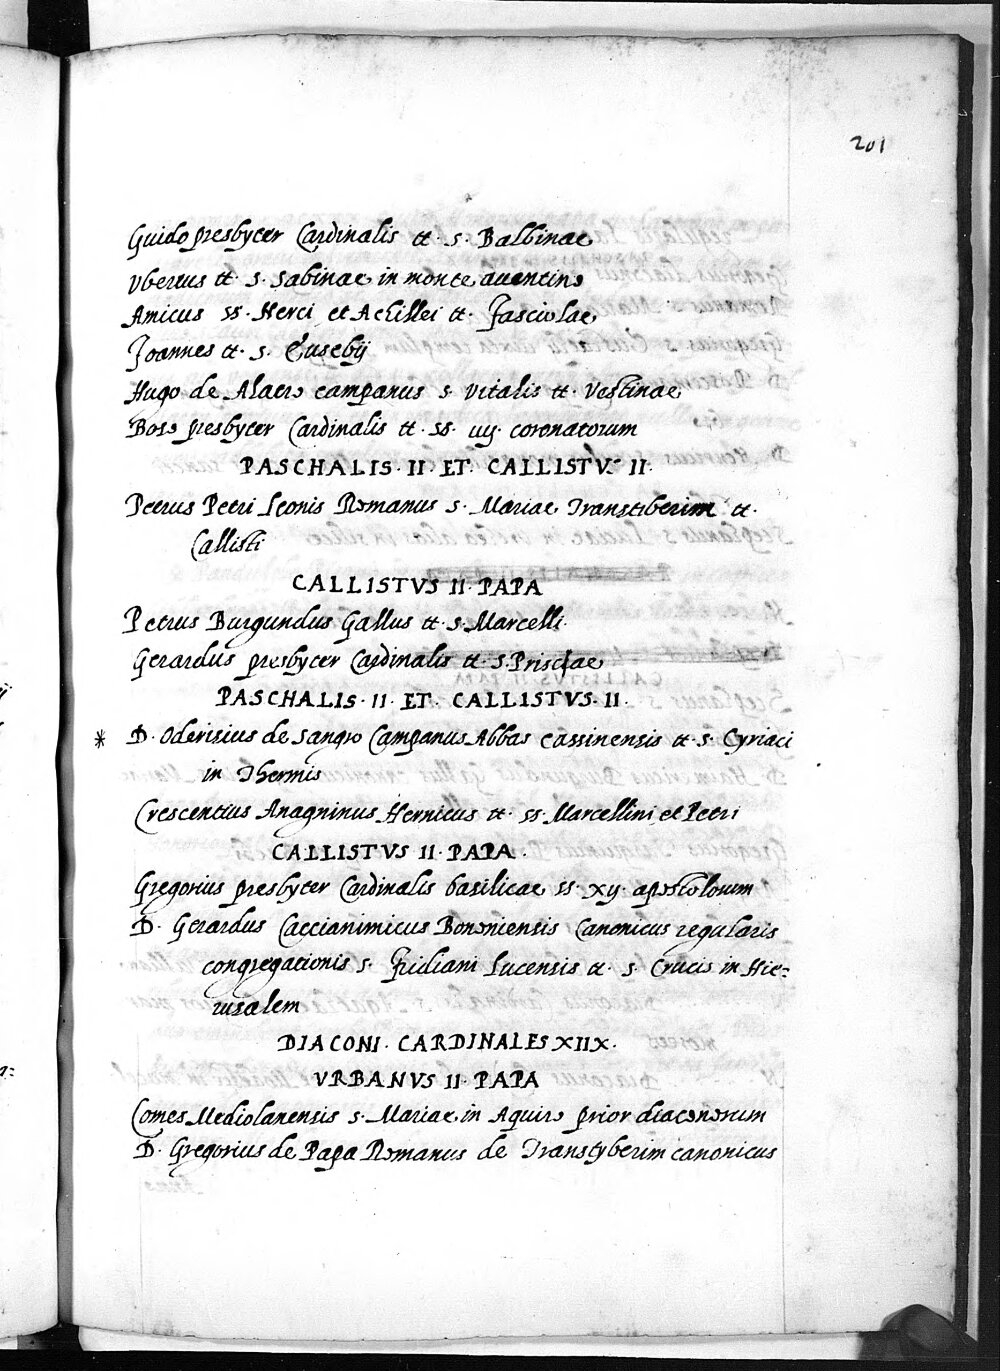 201
Guido presbyter Cardinalis tt. s. Balbinae
Vbertus tt. s. Sabinae in monte auentino
Amicus ss. Nerei et Achillei tt. Fasciolae
Joannes tt. s. Eusebij
Hugo de Alatro campanus s. Vitalis tt. Vestinae
Boso presbyter Cardinalis tt. ss. iiij. coronatorum
PASCHALIS. II. ET. CALLISTVS II.
Petrus Petri Leonis Romanus s. Mariae Transtiberim tt.
Callisti
CALLISTVS II. PAPA
Petrus Burgundus Gallus tt. s. Marcelli.
Gerardus presbyter Cardinalis tt. s. Priscae
PASCHALIS. II. ET. CALLISTVS. II.
* D. Oderisius de Sangro Campanus Abbas Cassinensis tt. s. Cyriaci
in Thermis
Crescentius Anagninus Hernicus tt. ss. Marcellini et Petri
CALLISTVS II. PAPA.
Gregorius presbyter Cardinalis basilicae ss. xij. apostolorum
D. Gerardus Caccianimicus Bononiensis Canonicus regularis
congregationis s. Fridiani Lucensis tt. s. Crucis in Hie=
rusalem
DIACONI. CARDINALES XIIX.
VRBANVS II. PAPA
Comes Mediolanensis s. Mariae in Aquiro prior diaconorum
D. Gregorius de Papa Romanus de Transtyberim canonicus